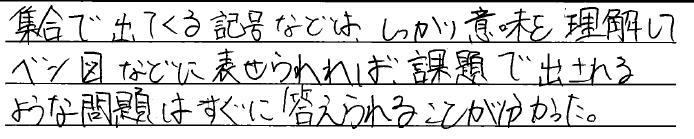 集合で出てくる記号などは、しっかり意味を理解して
ベン図などに表せられれば、課題で出される
ような問題はすぐに答えられることが分かった。